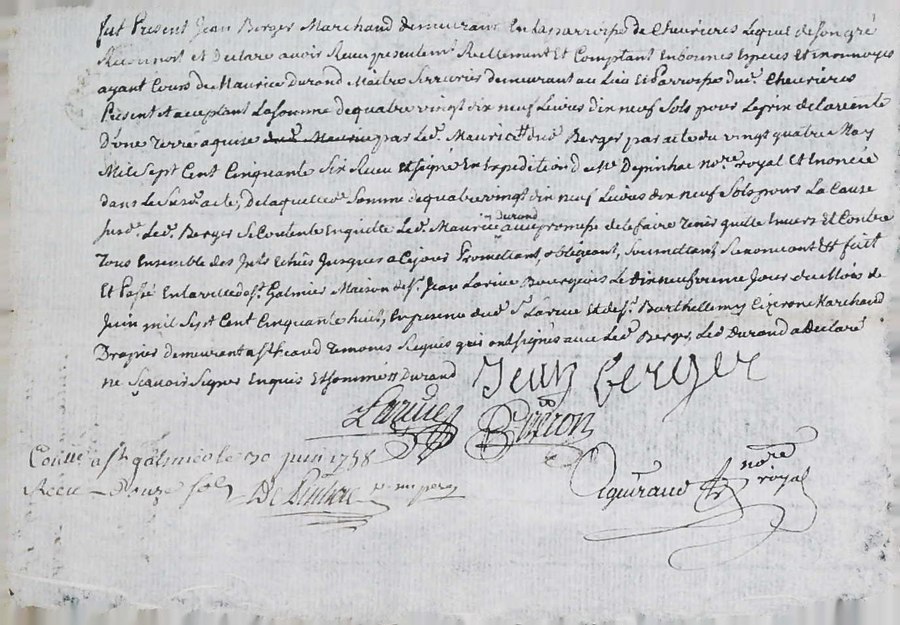 fut Present Jean Berger Marchand demeurant En la parroisse de Chevrieres Lequel de Son gré
Reconnoit et Declare avoir Receu presentemt Reellement Et Comptant En bonnes Especes Et monnoyes
ayant Cours de Maurice Durand Maitre Serrurier demeurant au Lieu Et Parroisse dud. Chevrieres
Present et acceptant La Somme de quatre vingt dix neuf Livres dix neuf Sols pour Le prix de la vente
D'une Terre aquise par Led. Maurice dud. Berger par acte du vingt quatre May
Mil Sept Cent Cinquante Six Receu Et Signé En Expedition de Me Depinhac nore royal Et Enoncée
dans Le Susd. acte, de laquelle d. Somme de quatre vingt dix neuf Livres dix neuf Sols pour La Cause
Susd. Led. Berger Se Contente En quitte Led. Maurice Durand avec promesse de le faire Tenir quitte Envers Et Contre
Tous Ensemble des Jnts Echûs Jusques a Ce jour Promettant, obligeant, Soumettant, Renoncant Et fait
Et Passé En la ville de St. Galmier Maison de Sr. Jean Larue Bourgeois Le Dix neufvieme Jour du Mois de
Juin mil Sept Cent Cinquante huit, En presence dud. Sr. Larue Et de Sr. Barthellemy Marchand
Drogiste demeurant a St. temoins Requis qui ont Signés avec Led. Berger, Led. Durand a Declaré
ne Sçavoir Signer Enquis Et Sommé Durand
Jean berger
Larue
B
Collé a St galmier le 30 juin 1758
Receu Douze sols De Pinhac
nore royal